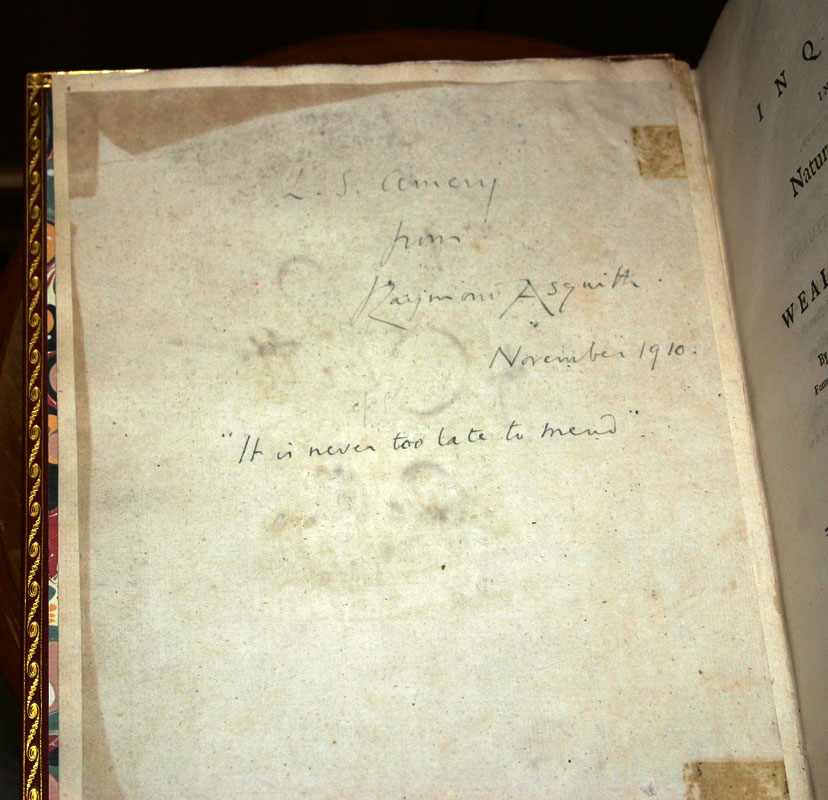 L. S. Amery
from
Raymond Asquith.
November 1910.
"It is never too late to mend".
INQ
IN
Natur
WEAL
By